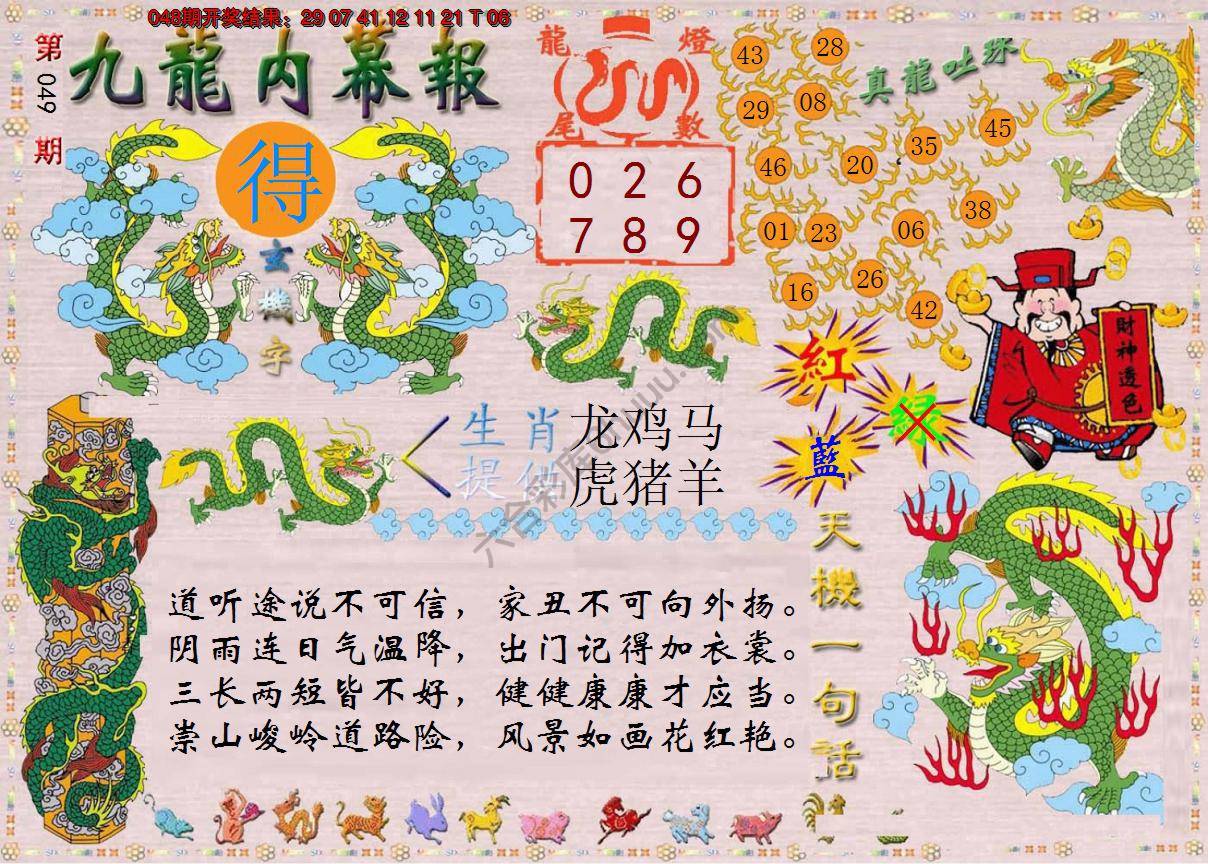 048期开奖结果：29 07 41 12 11 21 T 06
第049期
九龍内幕報
得
玄機字
龍燈尾數
0 2 6
7 8 9
真龍吐珠
43 28
29 08
46 20 35 45
01 23 06 38
16 26 42
財神透色
紅
绿
藍
生肖
龙鸡马
提供
虎猪羊
天機一句話
道听途说不可信，家丑不可向外扬。
阴雨连日气温降，出门记得加衣裳。
三长两短皆不好，健健康康才应当。
崇山峻岭道路险，风景如画花红艳。